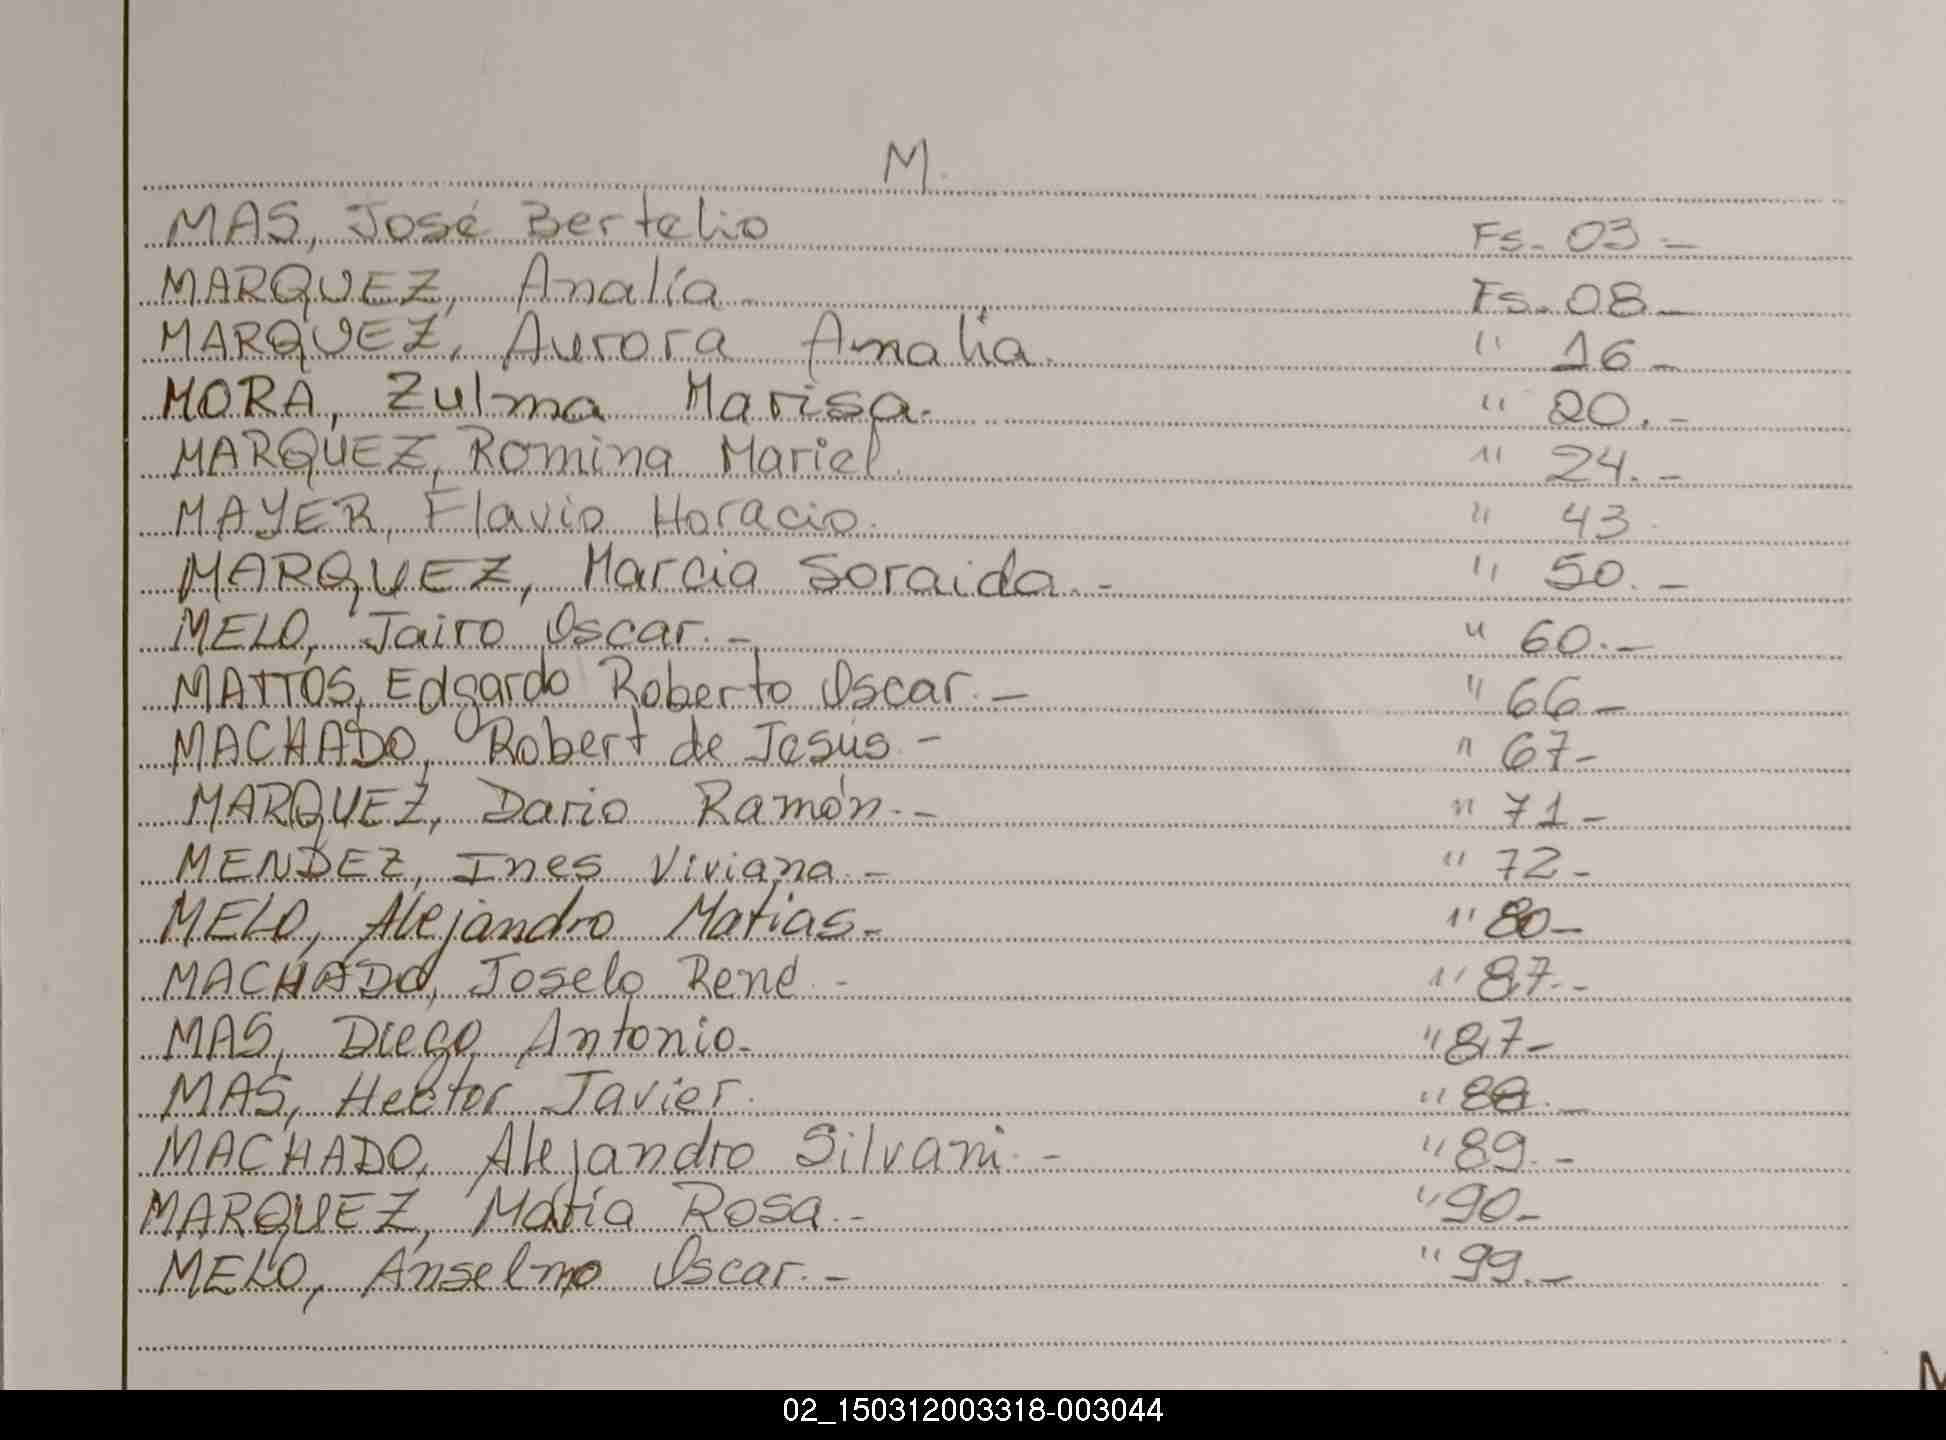 M.
MAS, José Bertelio Fs. 03 -
MARQUEZ, Analía Fs. 08 -
MARQUEZ, Aurora Amalia. " 16 -
MORA, Zulma Marisa. " 20. -
MARQUEZ, Romina Mariel. " 24. -
MAYER, Flavio Horacio. " 43.
MARQUEZ, Marcia Soraida. - " 50. -
MELO, Jairo Oscar. - " 60. -
MATTOS, Edgardo Roberto Oscar. - " 66 -
MACHADO, Robert de Jesús - " 67 -
MARQUEZ, Dario Ramón. - " 71 -
MENDEZ, Ines Viviana. - " 72 -
MELO, Alejandro Matias. " 80 -
MACHADO, Joselo René - " 87. -
MAS, Diego Antonio. " 87 -
MAS, Hector Javier. " 88. -
MACHADO, Alejandro Silvani. - " 89. -
MARQUEZ, María Rosa. - " 90 -
MELO, Anselmo Oscar. - " 99. -
02_150312003318-003044